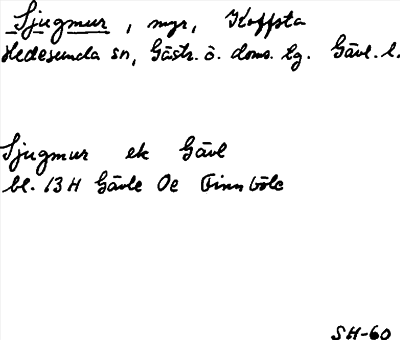 Sjugmur, myr, Koffsta
Hedesunda sn, Gästr. ö. doms. tg. Gävl. l.
Sjugmur ek Gävl
bl. 13H Gävle Oe Finnböle
SH-60